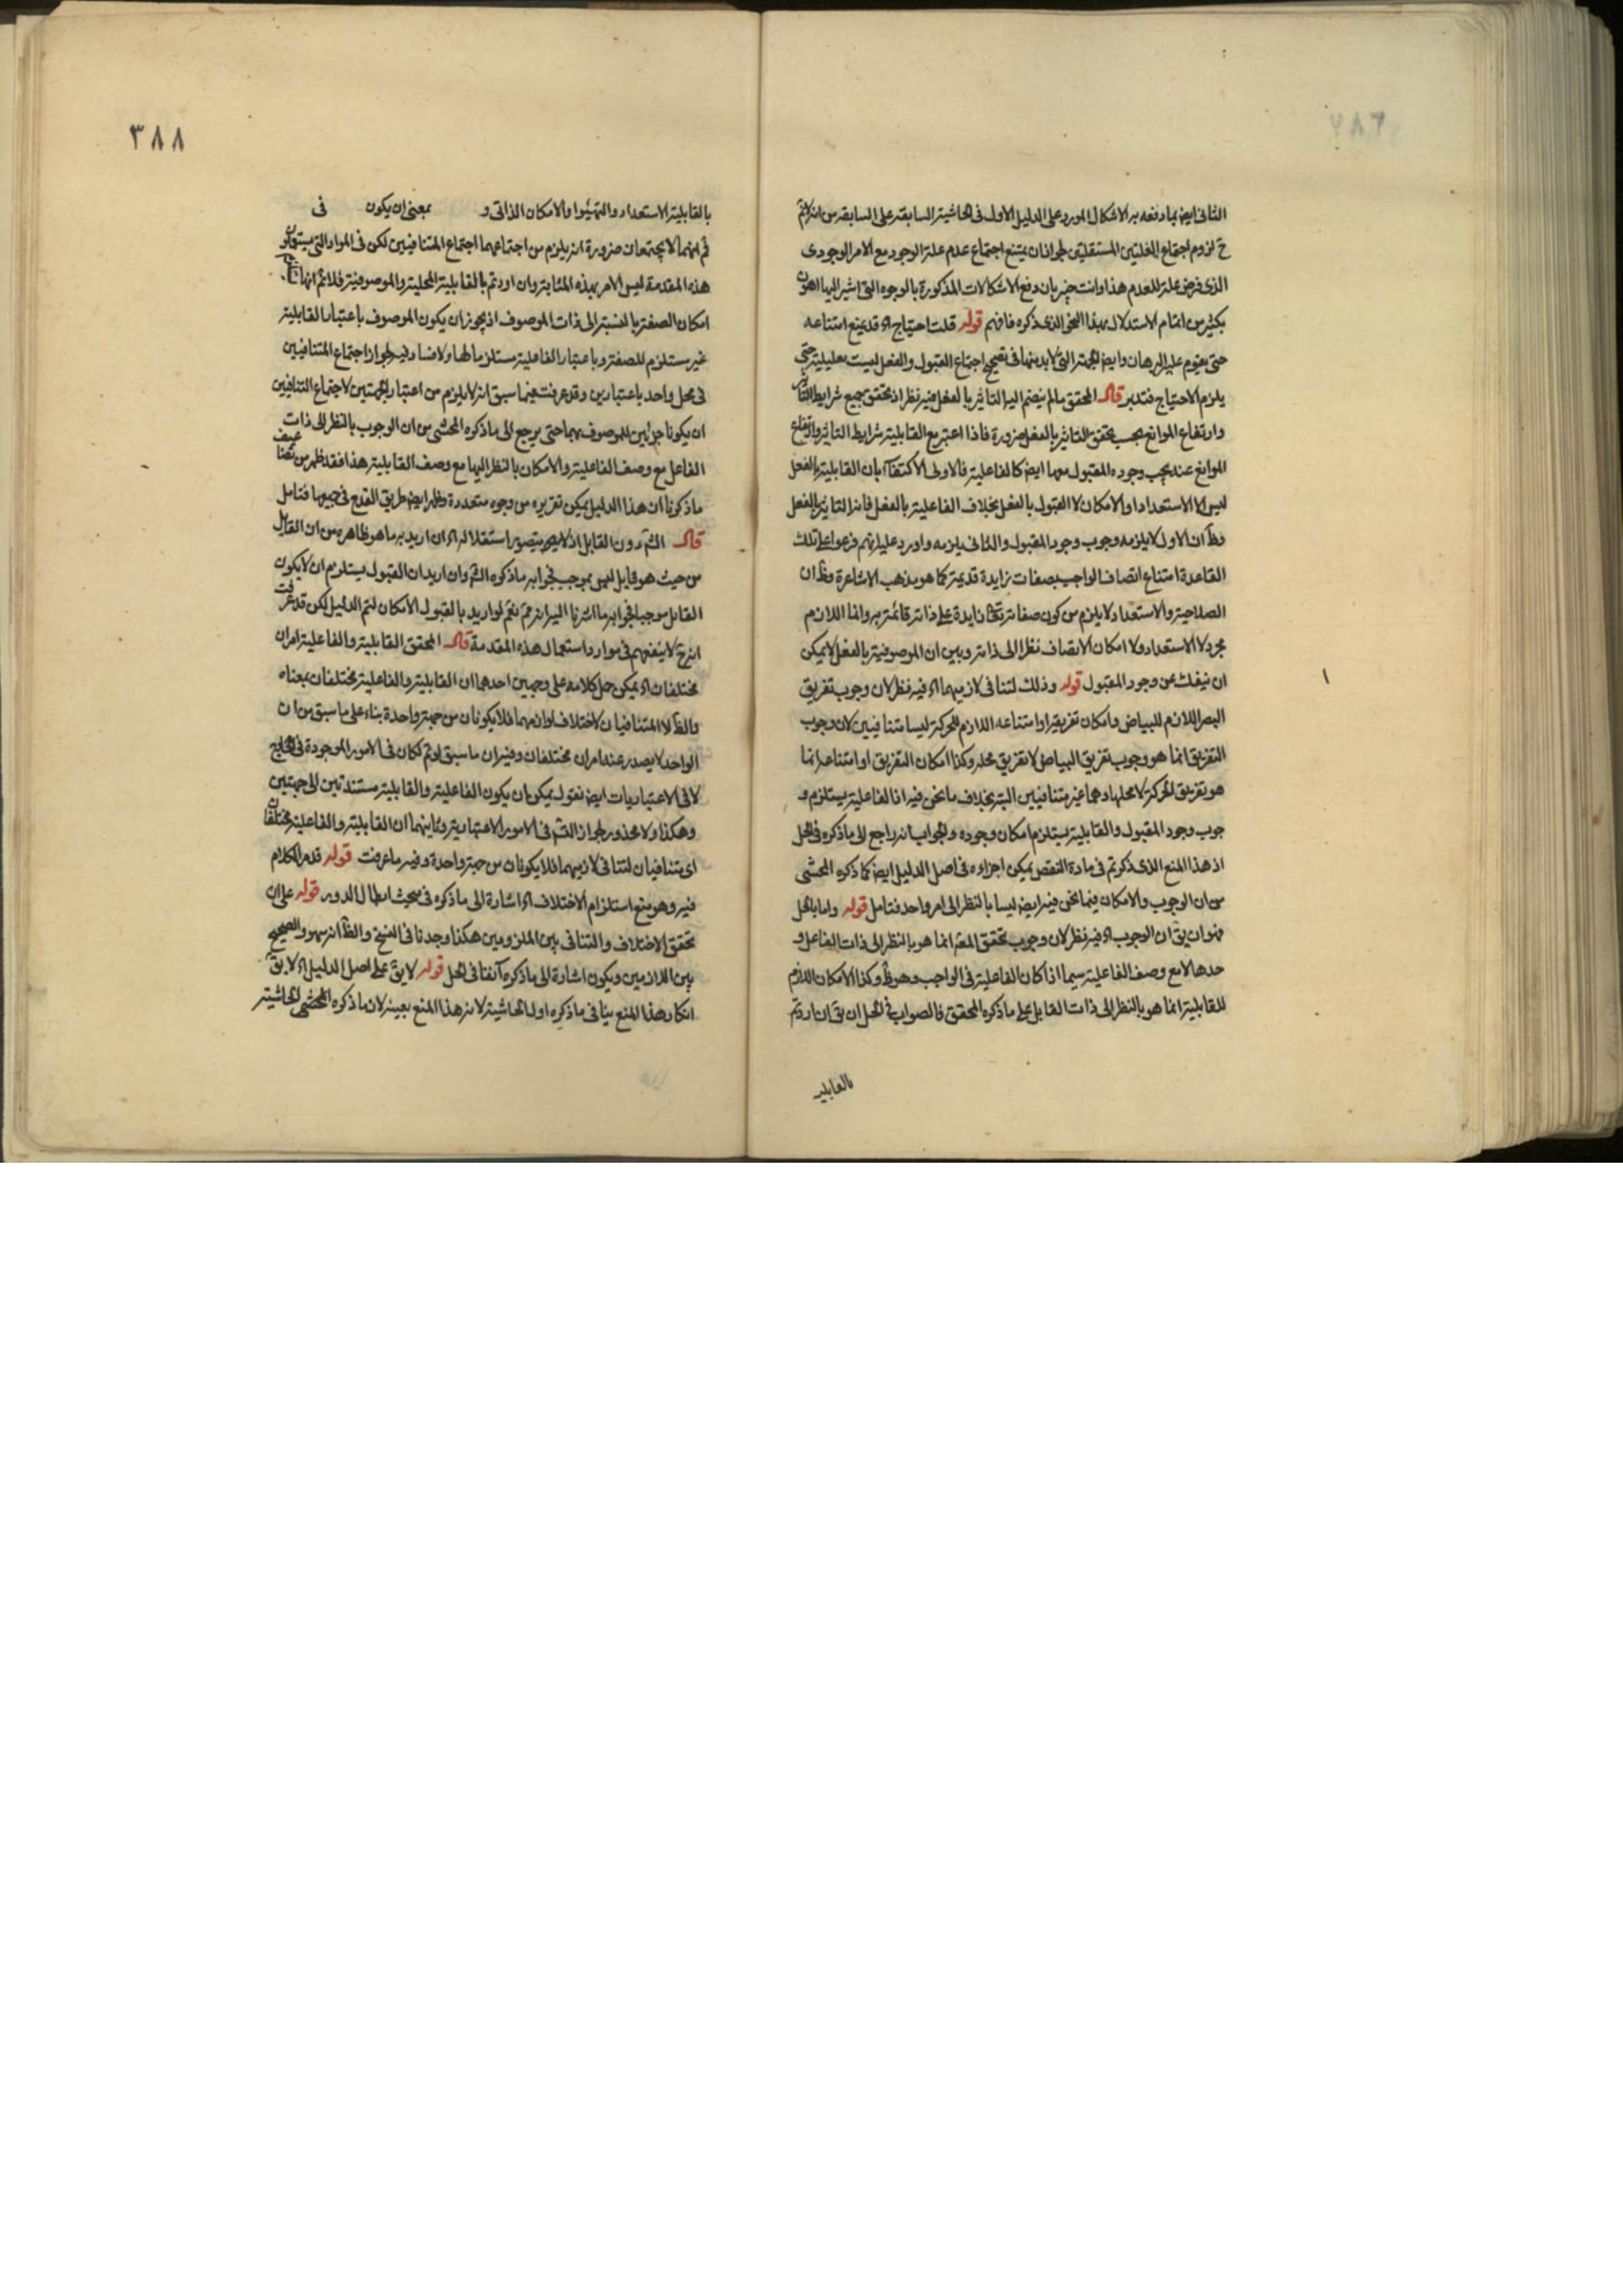 الثانى ايض بما دفعه به الاشكال المورد على الدليل الاول فى الحاشية السابقة على السابقة من انه لا نم
ح لزوم اجتماع العلتين المستقلتين لجواز ان يمتنع اجتماع عدم علة الوجود مع الامر الوجودى
الذى فرض علة للعدم هذا وانت خبير بان دفع الاشكالات المذكورة بالوجوه التى اشير اليها اهون
بكثير من اتمام الاستدلال بهذا النحو الذى ذكره فافهم قوله قلت احتياج اه قد يمنع امتناعه
حتى يقوم عليه البرهان وايض الجهة التى لا بد منها فى تصحيح اجتماع القبول والفعل ليست تعليلية حتى
يلزم الاحتياج فتدبر قال المحقق مالم ينضم اليه التاثير بالفعل فيه نظر اذ بتحقق جميع شرايط التاثير
وارتفاع الموانع يجب تحقق التاثير بالفعل ضرورة فاذا اعتبر مع القابلية شرايط التاثير وارتفاع
الموانع عنده يجب وجوده المقبول معها ايض كالفاعلية فالاولى الاكتفاء بان القابلية بالفعل
ليس الا الاستعداد او الامكان لا القبول بالفعل بخلاف الفاعلية بالفعل فانها التاثير بالفعل
وظ ان الاول لا يلزمه وجوب وجود المقبول والثانى يلزمه واورد عليه انهم فرعوا على تلك
القاعدة امتناع اتصاف الواجب بصفات زايدة قديمة كما هو مذهب الاشاعرة وظ ان
الصلاحية والاستعداد لا يلزم من كون صفاته تعالى زايدة على ذاته قائمة به وانما اللازم
مجرد لا الاستعداد ولا امكان الاتصاف نظرا الى ذاته وبين ان الموصوفية بالفعل لا يمكن
ان ينفك عن وجود المقبول قوله وذلك لتنافى لازميهما اه فيه نظر لان وجوب تفريق
البصر اللازم للبياض وامكان تفريقه او امتناعه اللازم للحركة ليسا متنافيين لان وجوب
التفريق انما هو وجوب تفريق البياض لا تفريق محله وكذا امكان التفريق او امتناعه انما
هو تفريق الحركة لا محلها وهما غير متنافيين البتة بخلاف ما نحن فيه اذ الفاعلية يستلزم و
جوب وجود المقبول والقابلية يستلزم امكان وجوده والجواب انه راجع الى ما ذكره فى الحل
اذ هذا المنع الذى ذكرتم فى مادة النقض يمكن اجراءه فى اصل الدليل ايض كما ذكره المحشى
من ان الوجوب والامكان فيما نحن فيه ايض ليسا بالنظر الى امر واحد فتامل قوله واما بالحل
فهو ان يق ان الوجوب اه فيه نظر لان وجوب تحقق المعلول انما هو بالنظر الى ذات الفاعل و
حدها لا مع وصف الفاعلية سيما اذا كان الفاعلية فى الواجب وهو ظ وكذا الامكان اللازم
للقابلية انما هو بالنظر الى ذات القابل على ما ذكره المحقق فالصواب فى الحل ان يق ان اردتم
بالقابلية
٣٨٨
بالقابلية الاستعداد والتهيؤ او الامكان الذاتى و بمعنى ان يكون فى
ثم انهما لا يجتمعان ضرورة انه يلزم من اجتماعهما اجتماع المتنافيين لكن فى المواد التى يستعملون
هذه المقدمة ليس الامر بهذه المثابة وان اردتم بالقابلية المحلية والموصوفية فلا نم انها
امكان الصفة بالنسبة الى ذات الموصوف اذ يجوز ان يكون الموصوف باعتبار القابلية
غير مستلزم للصفة وباعتبار الفاعلية مستلزما لها ولا فساد فيه لجواز اجتماع المتنافيين
فى محل واحد باعتبارين وقد عرفت فيما سبق انه لا يلزم من اعتبار الجهتين لاجتماع المتنافيين
ان يكونا جزئين للموصوف بهما حتى يرجع الى ما ذكره المحشى من ان الوجوب بالنظر الى ذات
الفاعل مع وصف الفاعلية والامكان بالنظر اليها مع وصف القابلية هذا فقد ظهر من تضاعيف
ما ذكرنا ان هذا الدليل يمكن تقريره من وجوه متعددة وظهر ايض طريق القدح فى جميعها فتامل
قال الشم دون القابل اذ لا يتصور استقلاله اه ان اريد به ما هو ظاهره من ان القابل
من حيث هو قابل ليس بموجب فجوابه ما ذكره الشم وان اريد ان القبول يستلزم ان لا يكون
القابل موجبا فجوابه ما اشرنا اليه انه مم نعم لو اريد بالقبول الامكان لتم الدليل لكن قد عرفت
انه ح لا ينفعهم فى موارد استعمال هذه المقدمة قال المحقق القابلية والفاعلية امران
مختلفان اه يمكن حمل كلامه على وجهين احدهما ان القابلية والفاعلية مختلفان بمعناه
الظ لا المتنافيان لاختلاف لوازمهما فلا يكونان من جهة واحدة بناء على ما سبق من ان
الواحد لا يصدر عنه امران مختلفان وفيه ان ما سبق لو تم لكان فى الامور الموجودة فى الخارج
لا فى الاعتباريات ايض نقول يمكن ان يكون الفاعلية والقابلية مستندتين الى جهتين
وهكذا ولا محذور لجواز التس فى الامور الاعتبارية وثانيهما ان القابلية والفاعلية مختلفان
اى متنافيان لتنافى لازميهما فلا يكونان من جهة واحدة وفيه ما عرفت قوله قد مر الكلام
فيه وهو منع استلزام الاختلاف اه اشارة الى ما ذكره فى مبحث ابطال الدور قوله على ان
تحقق الاختلاف والتنافى بين الملزومين هكذا وجدنا فى النسخ والظ انه سهو والصحيح
بين اللازمين ويكون اشارة الى ما ذكره آنفا فى الحل قوله لا يق على اصل الدليل اه لا يق
انكار هذا المنع ينافى ما ذكره اول الحاشية لانه هذا المنع بعينه لان ما ذكره المحشى الحاشية